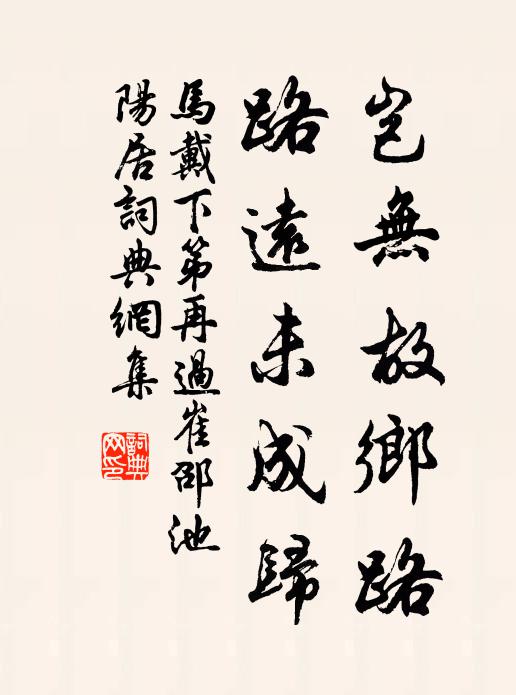 豈無故鄉路
路遠未成歸
馬戴下第再過崔邵池
陽居詞典網集
詞典网印